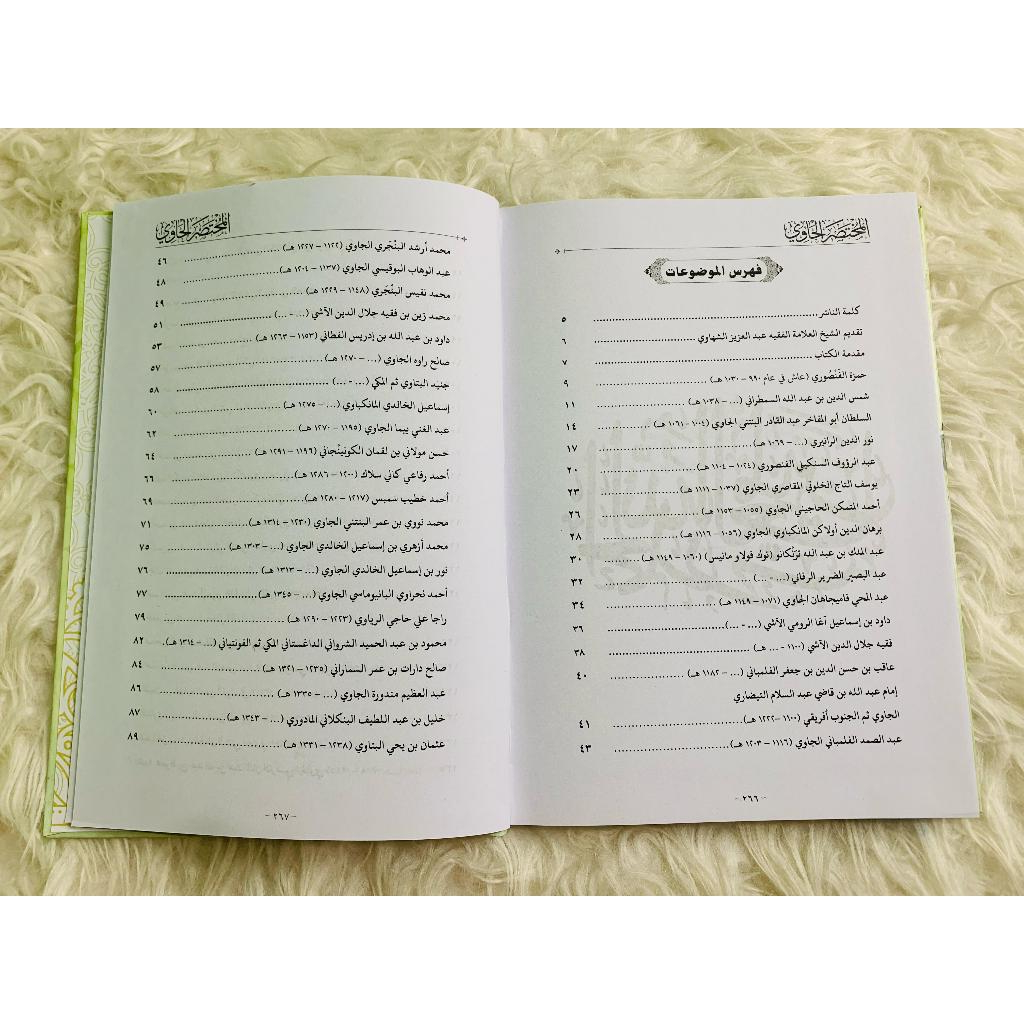 المختصر الحاوي
فهرس الموضوعات
كلمة الناشر ٥
تقديم الشيخ العلامة الفقيه عبد العزيز الشهاوي ٦
مقدمة الكتاب ٧
حمزة الفَنْصُوري (عاش في عام ٩٩٠ - ١٠٣٠ هـ) ٩
شمس الدين بن عبد الله السمطراني (... - ١٠٣٨ هـ) ١١
السلطان أبو المفاخر عبد القادر البنتني الجاوي (١٠٠٤ - ١٠٦١ هـ) ١٤
نور الدين الرانيري (... - ١٠٦٩ هـ) ١٧
عبد الرؤوف السنكيلي الفنصوري (١٠٢٤ - ١١٠٤ هـ) ٢٠
يوسف التاج الخلوتي المقاصري الجاوي (١٠٣٧ - ١١١١ هـ) ٢٣
أحمد المتمكن الحاجيني الجاوي (١٠٥٥ - ١١٥٣ هـ) ٢٦
برهان الدين أولاكن المانكباوي الجاوي (١٠٥٦ - ١١١٦ هـ) ٢٨
عبد الملك بن عبد الله ترَنْكانو (توك فولاو مانيس) (١٠٦٠ - ١١٤٩ هـ) ٣٠
عبد البصير الضرير الرفاني (... - ...) ٣٢
عبد المحي فاميجاهان الجاوي (١٠٧١ - ١١٤٩ هـ) ٣٤
داود بن إسماعيل آغا الرومي الآشي (... - ...) ٣٦
فقيه جلال الدين الآشي (١١٠٠ - ... هـ) ٣٨
عاقب بن حسن الدين بن جعفر الفلمباني (... - ١١٨٢ هـ) ٤٠
إمام عبد الله بن قاضي عبد السلام التيضاري
الجاوي ثم الجنوب أفريقي (١١٠٠ - ١٢٢٢ هـ) ٤١
عبد الصمد الفلمباني الجاوي (١١١٦ - ١٢٠٣ هـ) ٤٣
- ٢٦٦ -
المختصر الحاوي
محمد أرشد البنْجَري الجاوي (١١٢٢ - ١٢٢٧ هـ) ٤٦
عبد الوهاب البوقيسي الجاوي (١١٣٧ - ١٢٠٤ هـ) ٤٨
محمد نفيس البنْجَري (١١٤٨ - ١٢٢٩ هـ) ٤٩
محمد زين بن فقيه جلال الدين الآشي (... - ...) ٥١
داود بن عبد الله بن إدريس الفطاني (١١٥٣ - ١٢٦٣ هـ) ٥٣
صالح راوه الجاوي (... - ١٢٧٠ هـ) ٥٧
جنيد البتاوي ثم المكي (... - ...) ٥٨
إسماعيل الخالدي المانكباوي (... - ١٢٧٥ هـ) ٦٠
عبد الغني بيما الجاوي (١١٩٥ - ١٢٧٠ هـ) ٦٢
حسن مولاني بن لقمان الكونينْجاني (١١٩٦ - ١٢٩١ هـ) ٦٤
أحمد رفاعي كالي سلاك (١٢٠٠ - ١٢٨٦ هـ) ٦٦
أحمد خطيب سمبس (١٢١٧ - ١٢٨٠ هـ) ٦٩
محمد نووي بن عمر البنتني الجاوي (١٢٣٠ - ١٣١٤ هـ) ٧١
محمد أزهري بن إسماعيل الخالدي الجاوي (... - ١٣٠٣ هـ) ٧٥
نور بن إسماعيل الخالدي الجاوي (... - ١٣١٣ هـ) ٧٦
أحمد نحراوي البانيوماسي الجاوي (... - ١٣٤٥ هـ) ٧٧
راجا علي حاجي الرياوي (١٢٢٣ - ١٢٩٠ هـ) ٧٩
محمود بن عبد الحميد الشرواني الداغستاني المكي ثم الفونتياني (... - ١٣١٤ هـ) ٨٢
صالح دارات بن عمر السماراني (١٢٣٥ - ١٣٢١ هـ) ٨٤
عبد العظيم مندورة الجاوي (... - ١٣٣٥ هـ) ٨٦
خليل بن عبد اللطيف البنكلاني المادوري (... - ١٣٤٣ هـ) ٨٧
عثمان بن يحي البتاوي (١٢٣٨ - ١٣٣١ هـ) ٨٩
- ٢٦٧ -